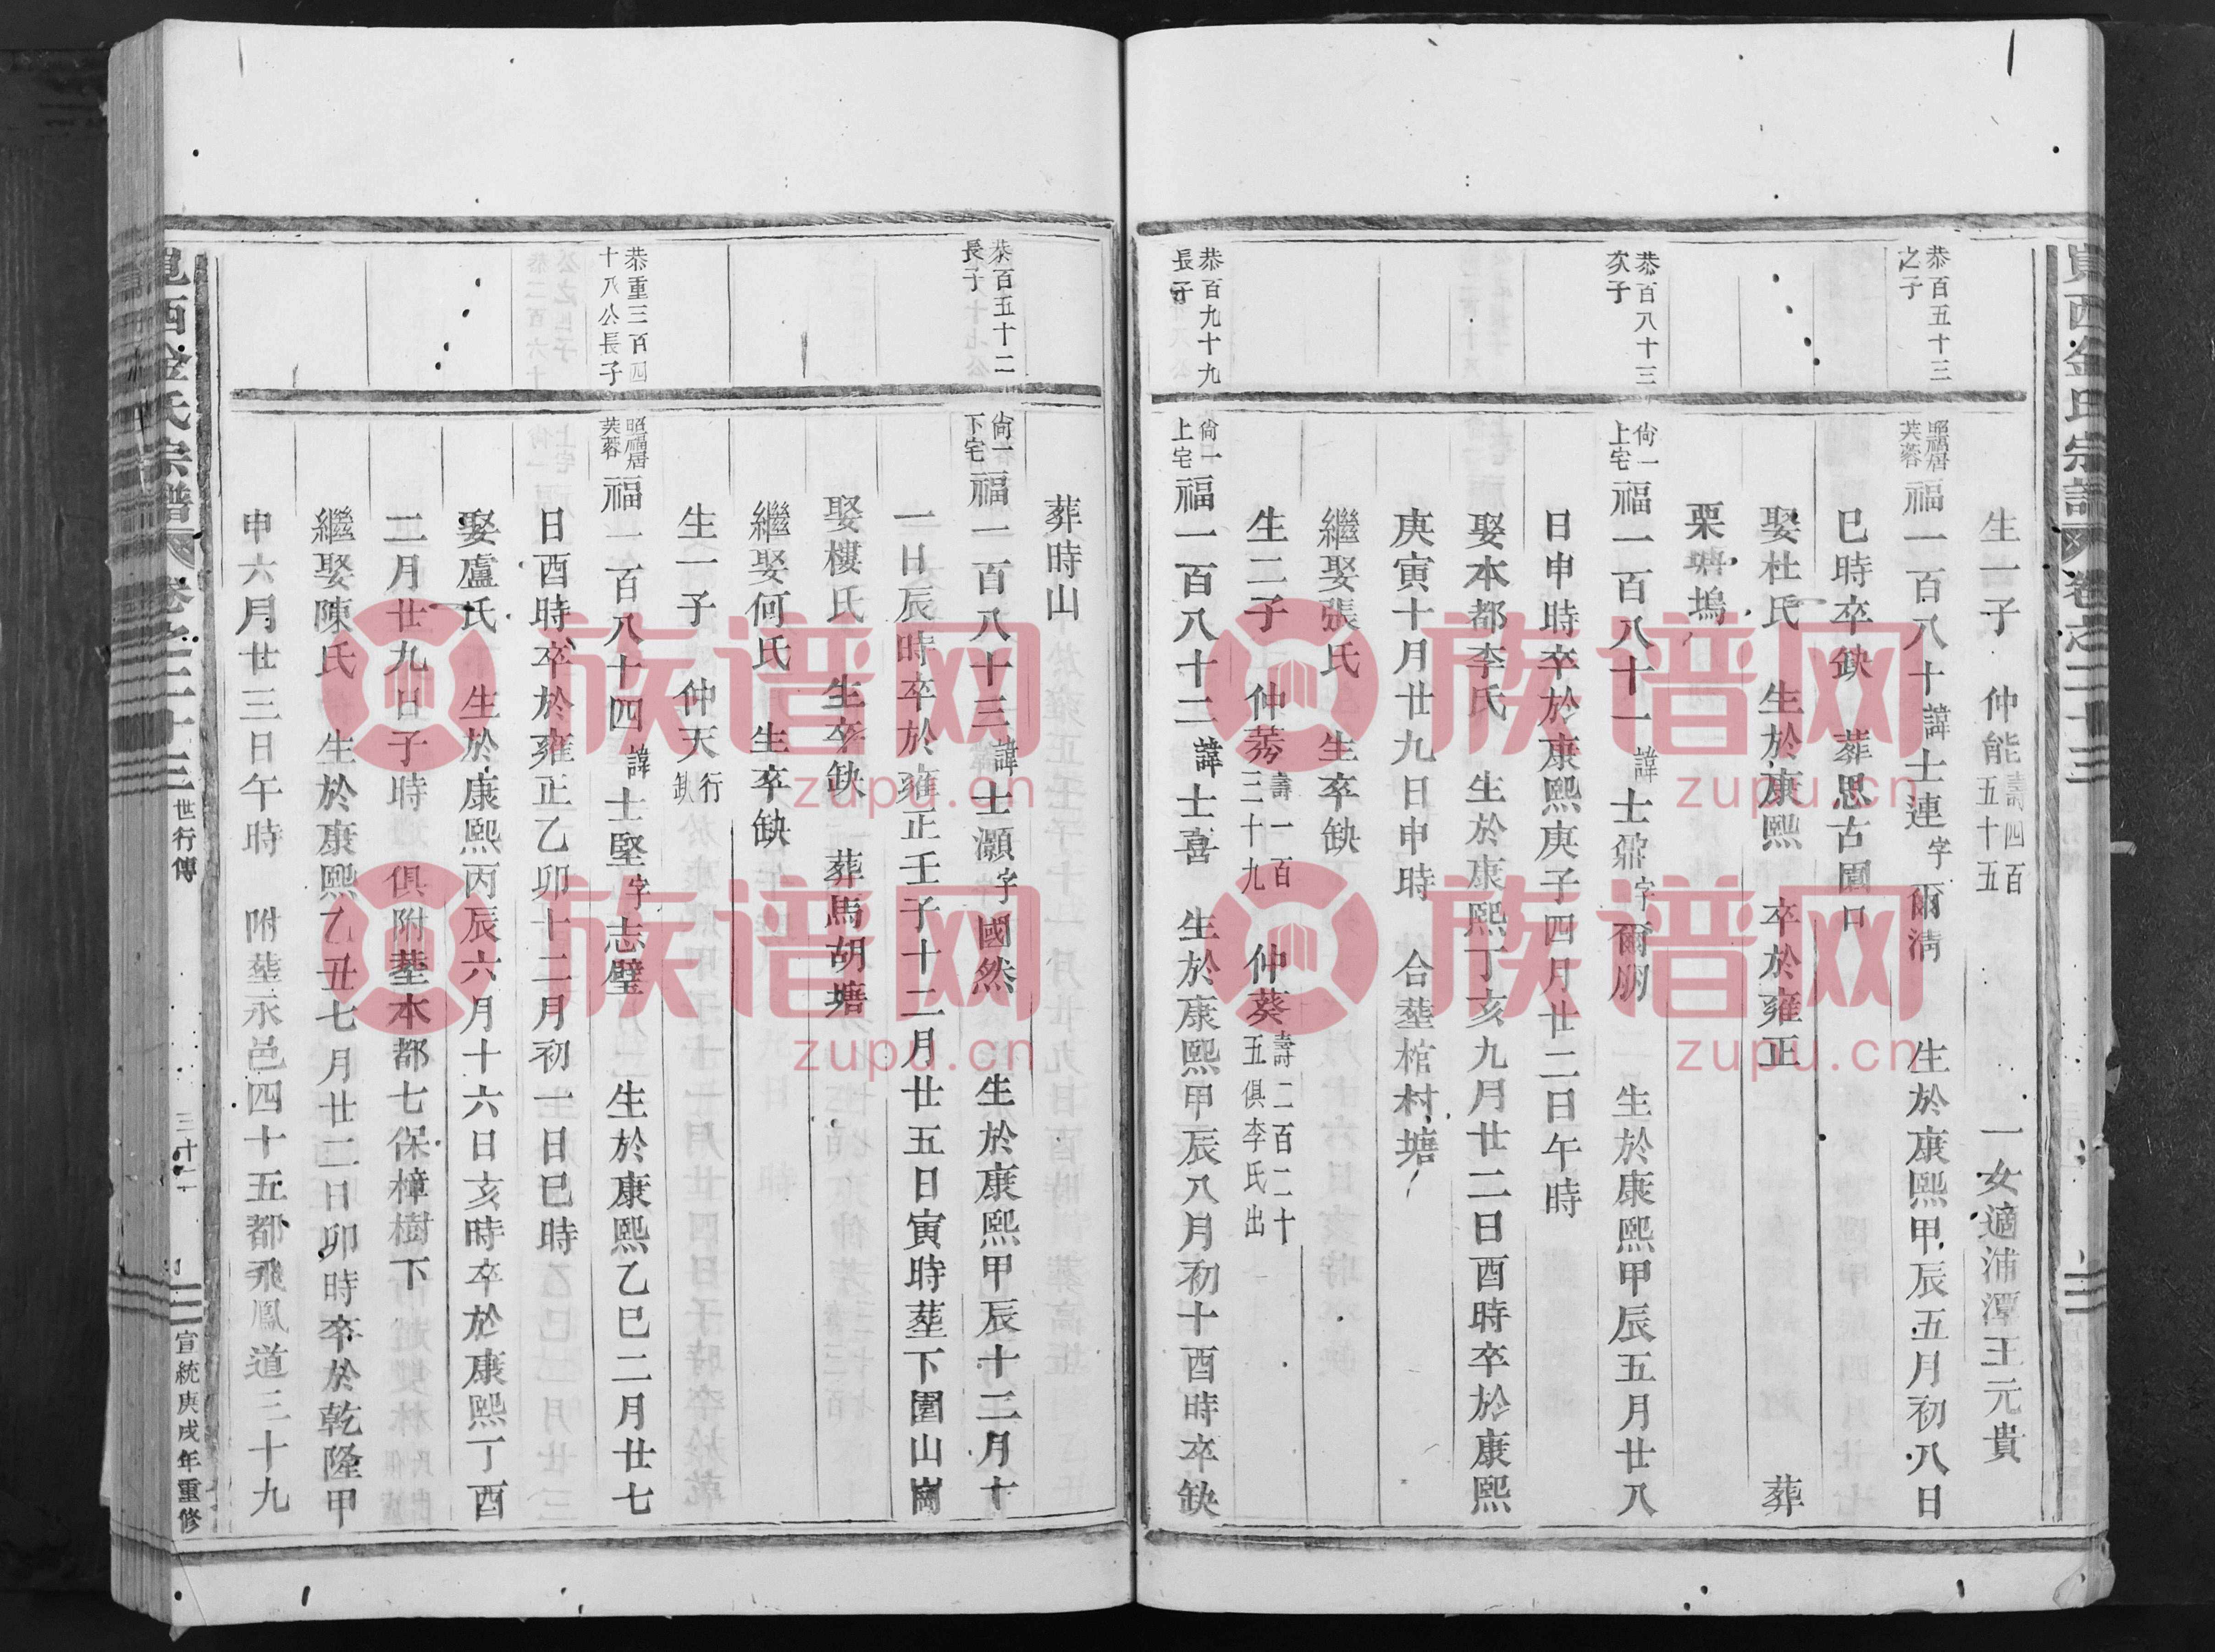 生一子　仲能壽四百五十五　一女適浦潭王元貴
恭百五十三之子
照福居芙蓉　福一百八十諱士連字爾清　生於康熙甲辰五月初八日
巳時卒缺　葬思古園口
娶杜氏　生於康熙　卒於雍正　葬
栗塘塢
恭百八十三次子
尙一上宅　福一百八十一諱士鼐字爾朋　生於康熙甲辰五月廿八
日申時卒於康熙庚子四月廿二日午時
娶本都李氏　生於康熙丁亥九月廿二日酉時卒於康熙
庚寅十月廿九日申時　合塟棺村塘
繼娶張氏　生卒缺
生二子　仲菞壽一百三十九　仲葵壽二百二十五俱李氏出
恭百九十九長子
尙一上宅　福一百八十二諱士喜　生於康熙甲辰八月初十酉時卒缺
葬時山
恭百五十二長子
尙一下宅　福一百八十三諱士灝字國然　生於康熙甲辰十二月十
一日辰時卒於雍正壬子十二月廿五日寅時塟下圍山崗
娶樓氏　生卒缺　葬馬胡塘
繼娶何氏　生卒缺
生一子　仲天行缺
恭重三百四十八公長子
照福居芙蓉　福一百八十四諱士堅字志璧　生於康熙乙巳二月廿七
日酉時卒於雍正乙卯十二月初一日巳時
娶盧氏　生於康熙丙辰六月十六日亥時卒於康熙丁酉
二月廿九日子時　俱附塟本都七保樟樹下
繼娶陳氏　生於康熙乙丑七月廿二日卯時卒於乾隆甲
申六月廿三日午時　附塟永邑四十五都飛鳳道三十九
西金氏宗譜　卷之二十三　世行傳　三十二　宣統庚戌年重修
族谱网
zupu.cn
族谱网
zupu.cn
族谱网
zupu.cn
族谱网
zupu.cn